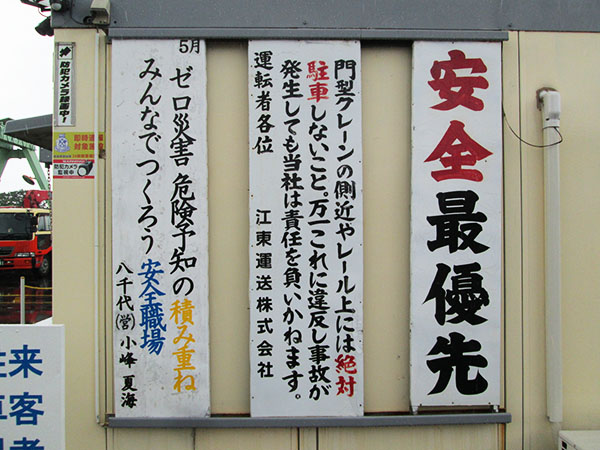 安全最優先
門型クレーンの側近やレール上には絶対
駐車しないこと。万一これに違反し事故が
発生しても当社は責任を負いかねます。
運転者各位
江東運送株式会社
5月
ゼロ災害 危険予知の積み重ね
みんなでつくろう 安全職場
八千代(営) 小峰 夏海
防犯カメラ録画中!
防犯カメラ
監視中
来客者